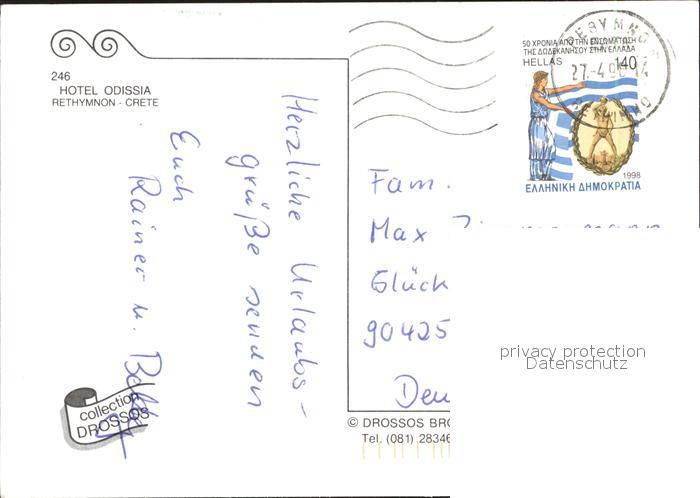 246
HOTEL ODISSIA
RETHYMNON - CRETE
Herzliche Urlaubs-
grüße senden
Euch
Rainer u.
collection
DROSSOS
50 ΧΡΟΝΙΑ ΑΠΟ ΤΗΝ ΕΝΣΩΜΑΤΩΣΗ
ΤΗΣ ΔΩΔΕΚΑΝΗΣΟΥ ΣΤΗΝ ΕΛΛΑΔΑ
HELLAS 140
27.-4.98 14
1998
ΕΛΛΗΝΙΚΗ ΔΗΜΟΚΡΑΤΙΑ
Fam.
Max
Glück
90425
Deu
privacy protection
Datenschutz
© DROSSOS BRO
Tel. (081) 28346